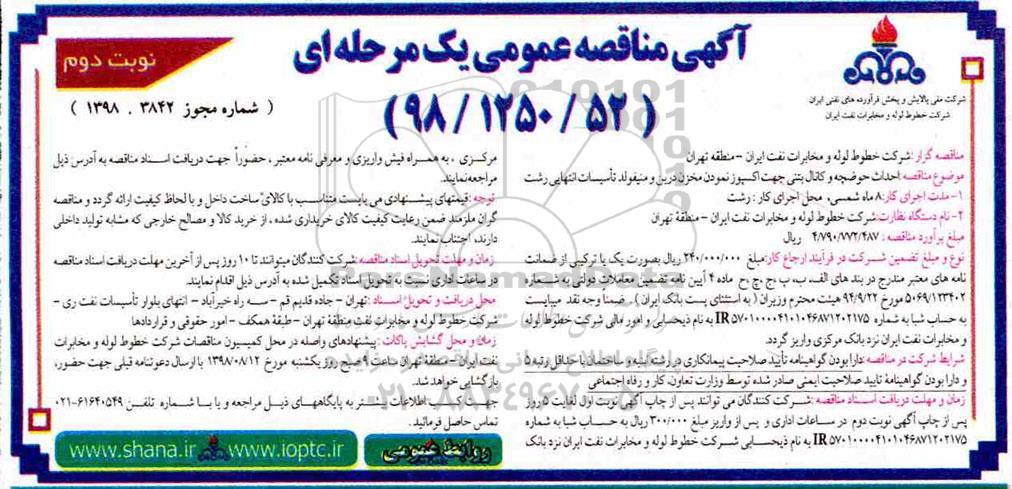 آگهی مناقصه عمومی یک مرحله ای
نوبت دوم
( ۹۸/۱۲۵۰/۵۲ )
( شماره مجوز ۳۸۴۲ . ۱۳۹۸ )
شرکت ملی پالایش و پخش فرآورده های نفتی ایران
شرکت خطوط لوله و مخابرات نفت ایران
مناقصه گزار: شرکت خطوط لوله و مخابرات نفت ایران - منطقه تهران
موضوع مناقصه: احداث حوضچه و کانال بتنی جهت اکسپوز نمودن مخزن درین و منیفولد تأسیسات انتهایی رشت
۱- مدت اجرای کار: ۸ ماه شمسی، محل اجرای کار: رشت
۲- نام دستگاه نظارت: شرکت خطوط لوله و مخابرات نفت ایران - منطقه تهران
مبلغ برآورد مناقصه: ۴/۷۹۰/۷۷۲/۴۸۷ ریال
نوع و مبلغ تضمین شرکت در فرآیند ارجاع کار: مبلغ ۲۴۰/۰۰۰/۰۰۰ ریال بصورت یک یا ترکیبی از ضمانت
نامه های معتبر مندرج در بند های الف، ب، پ، ج، چ، ح ماده ۴ آیین نامه تضمین معاملات دولتی به شماره
۵۰۶۹/۱۲۳۴۰۲ مورخ ۹۴/۹/۲۲ هیئت محترم وزیران ( به استثنای پست بانک ایران ). ضمنا وجه نقد میبایست
به حساب شبا به شماره IR۵۷۰۱۰۰۰۰۴۱۰۱۰۴۶۸۷۱۲۰۲۱۷۵ به نام ذیحسابی و امور مالی شرکت خطوط لوله
و مخابرات نفت ایران نزد بانک مرکزی واریز گردد.
شرایط شرکت در مناقصه: دارا بودن گواهینامه تأیید صلاحیت پیمانکاری در رشته ابنیه و ساختمان با حداقل رتبه ۵
و دارا بودن گواهینامۀ تایید صلاحیت ایمنی صادر شده توسط وزارت تعاون، کار و رفاه اجتماعی
زمان و مهلت دریافت اسناد مناقصه: شرکت کنندگان می توانند پس از چاپ آگهی نوبت اول لغایت ۵ روز
پس از چاپ آگهی نوبت دوم در ساعات اداری و پس از واریز مبلغ ۳۰۰/۰۰۰ ریال به حساب شبا به شماره
IR۵۷۰۱۰۰۰۰۴۱۰۱۰۴۶۸۷۱۲۰۲۱۷۵ به نام ذیحسابی شرکت خطوط لوله و مخابرات نفت ایران نزد بانک
مرکزی، به همراه فیش واریزی و معرفی نامه معتبر، حضوراً جهت دریافت اسناد مناقصه به آدرس ذیل
مراجعه نمایند.
توجه: قیمتهای پیشنهادی می بایست متناسب با کالای ساخت داخل و با لحاظ کیفیت ارائه گردد و مناقصه
گران ملزمند ضمن رعایت کیفیت کالای خریداری شده، از خرید کالا و مصالح خارجی که مشابه تولید داخلی
دارند، اجتناب نمایند.
زمان و مهلت تحویل اسناد مناقصه: شرکت کنندگان میتوانند تا ۱۰ روز پس از آخرین مهلت دریافت اسناد مناقصه
در ساعات اداری نسبت به تحویل اسناد تکمیل شده به آدرس ذیل اقدام نمایند.
محل دریافت و تحویل اسناد: تهران - جاده قدیم قم - سه راه خیرآباد - انتهای بلوار تأسیسات نفت ری -
شرکت خطوط لوله و مخابرات نفت منطقۀ تهران - طبقۀ همکف - امور حقوقی و قراردادها
زمان و محل گشایش پاکات: پیشنهادهای واصله در محل کمیسیون مناقصات شرکت خطوط لوله و مخابرات
نفت ایران - منطقۀ تهران ساعت ۹ صبح روز یکشنبه مورخ ۱۳۹۸/۰۸/۱۲ با ارسال دعوتنامه قبلی جهت حضور،
بازگشایی خواهد شد.
جهت کسب اطلاعات بیشتر به پایگاههای ذیل مراجعه و یا با شماره تلفن ۶۱۶۴۰۵۴۹-۰۲۱
تماس حاصل فرمائید.
روابط عمومی
www.shana.ir www.ioptc.ir
ParsNamadData
۰۲۱-۸۸۳۴۹۶۷۰